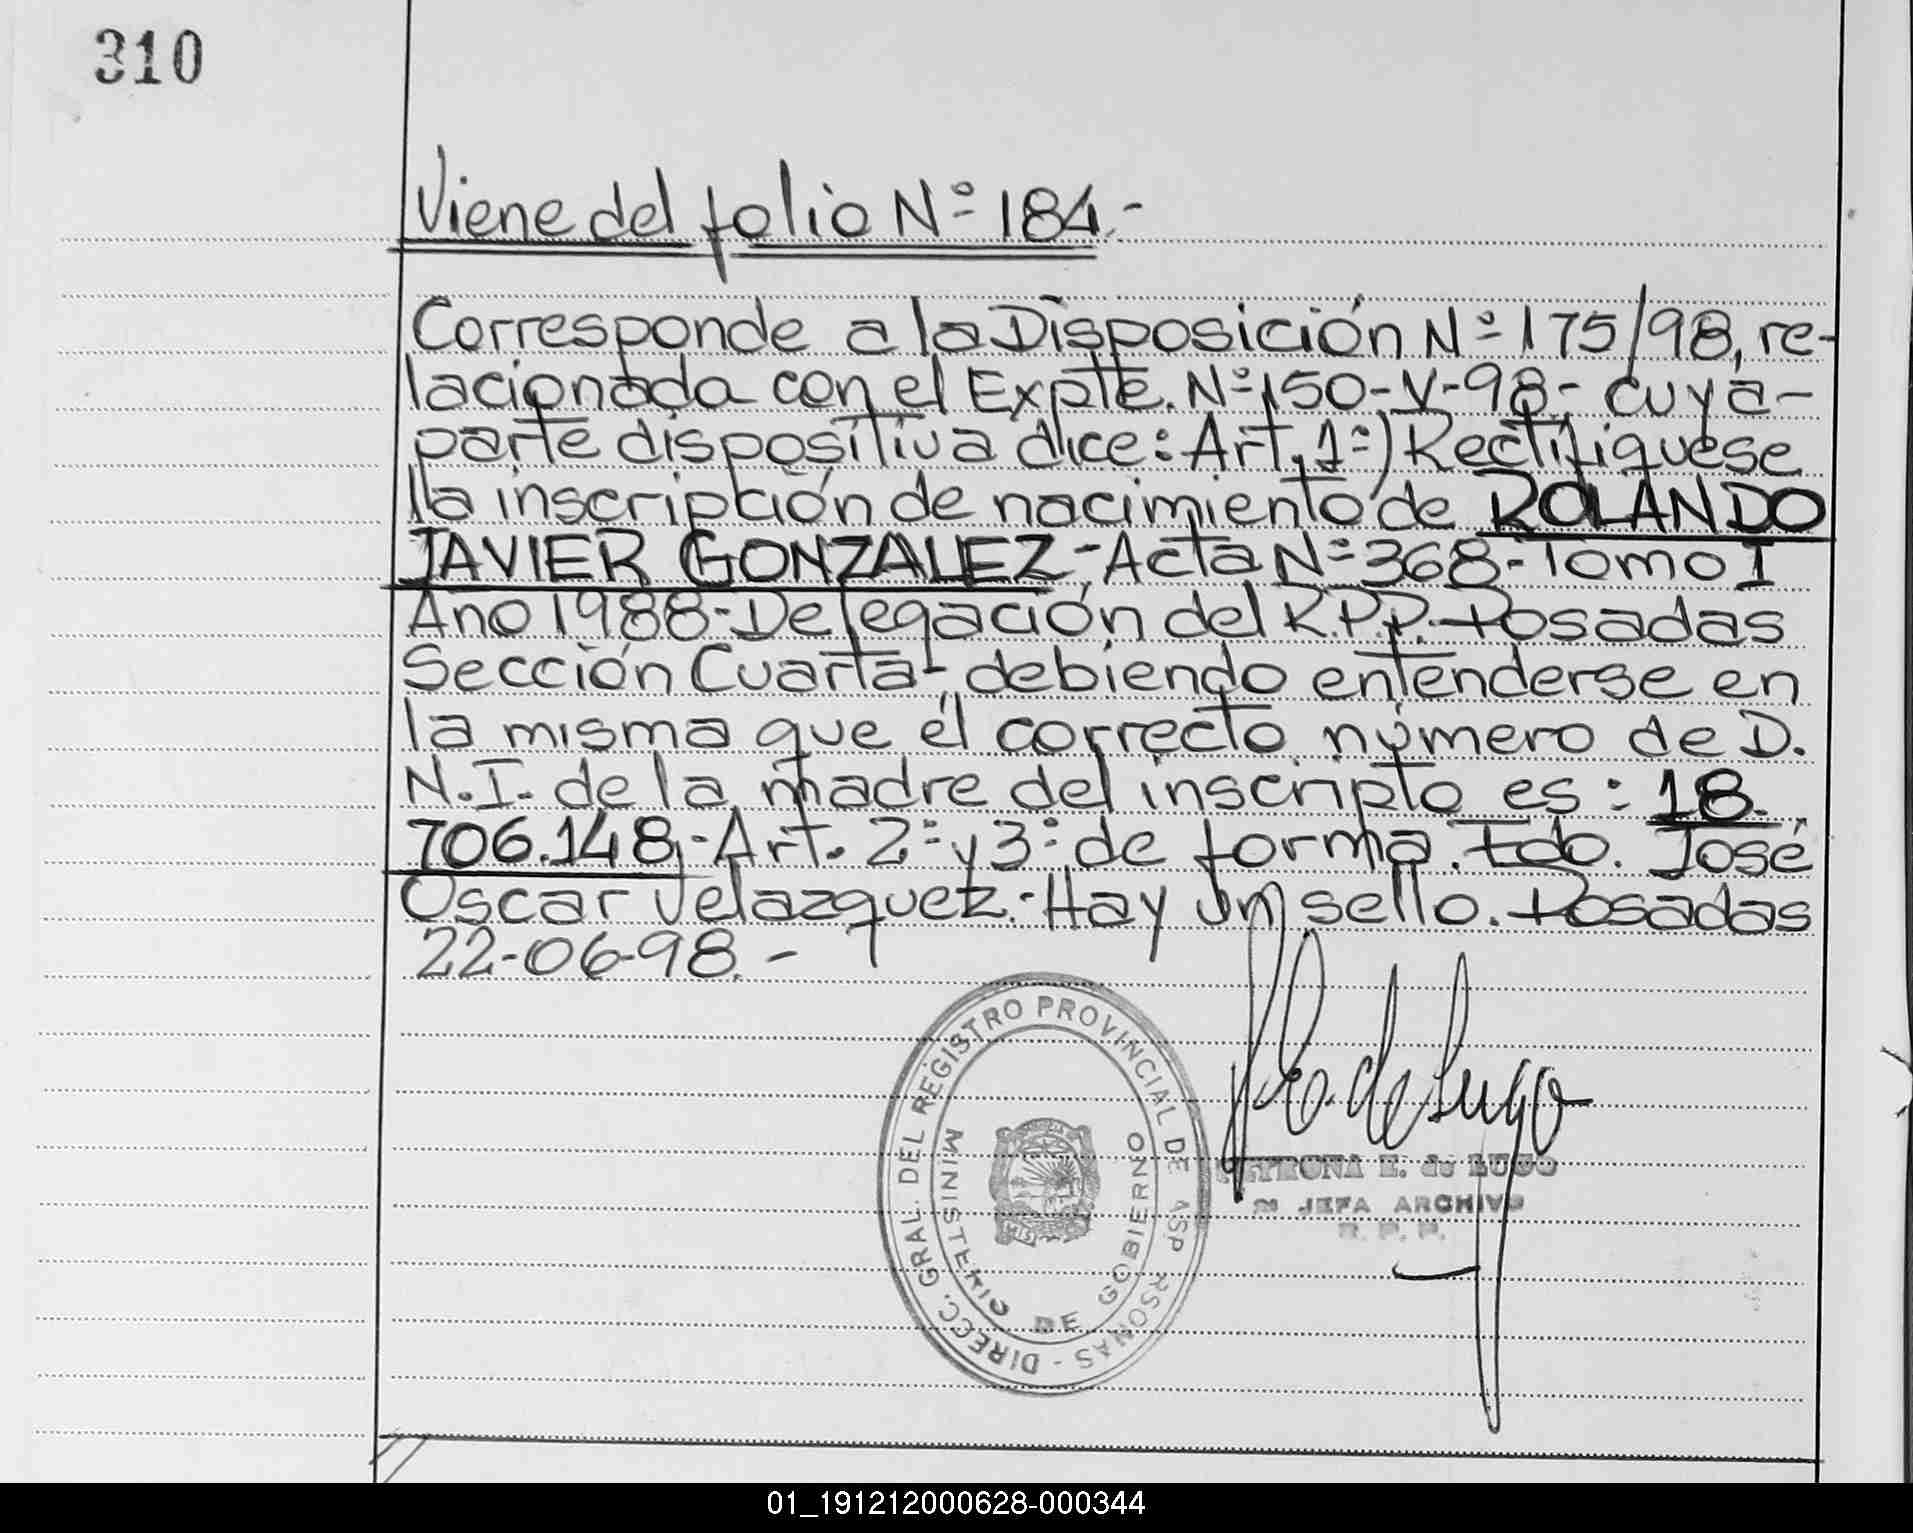 310
Viene del folio Nº 184.-
Corresponde a la Disposición Nº 175/98, re-
lacionada con el Expte. Nº 150-V-98- cuya-
parte dispositiva dice: Art. 1º) Rectifíquese
la inscripción de nacimiento de ROLANDO
JAVIER GONZALEZ- Acta Nº 368- Tomo I
Año 1988- Delegación del R.P.P. Posadas
Sección Cuarta- debiendo entenderse en
la misma que el correcto número de D.
N.I. de la madre del inscripto es: 18.
706.148,- Art. 2º y 3º de forma. Fdo. José
Oscar Velazquez.- Hay un sello. Posadas
22-06-98.-
DIRECC. GRAL. DEL REGISTRO PROVINCIAL DE ASP RSONAS -
MINISTERIO DE GOBIERNO
de Lugo
PETRONA E. de LUGO
JEFA ARCHIVO
R. P. P.
01_191212000628-000344